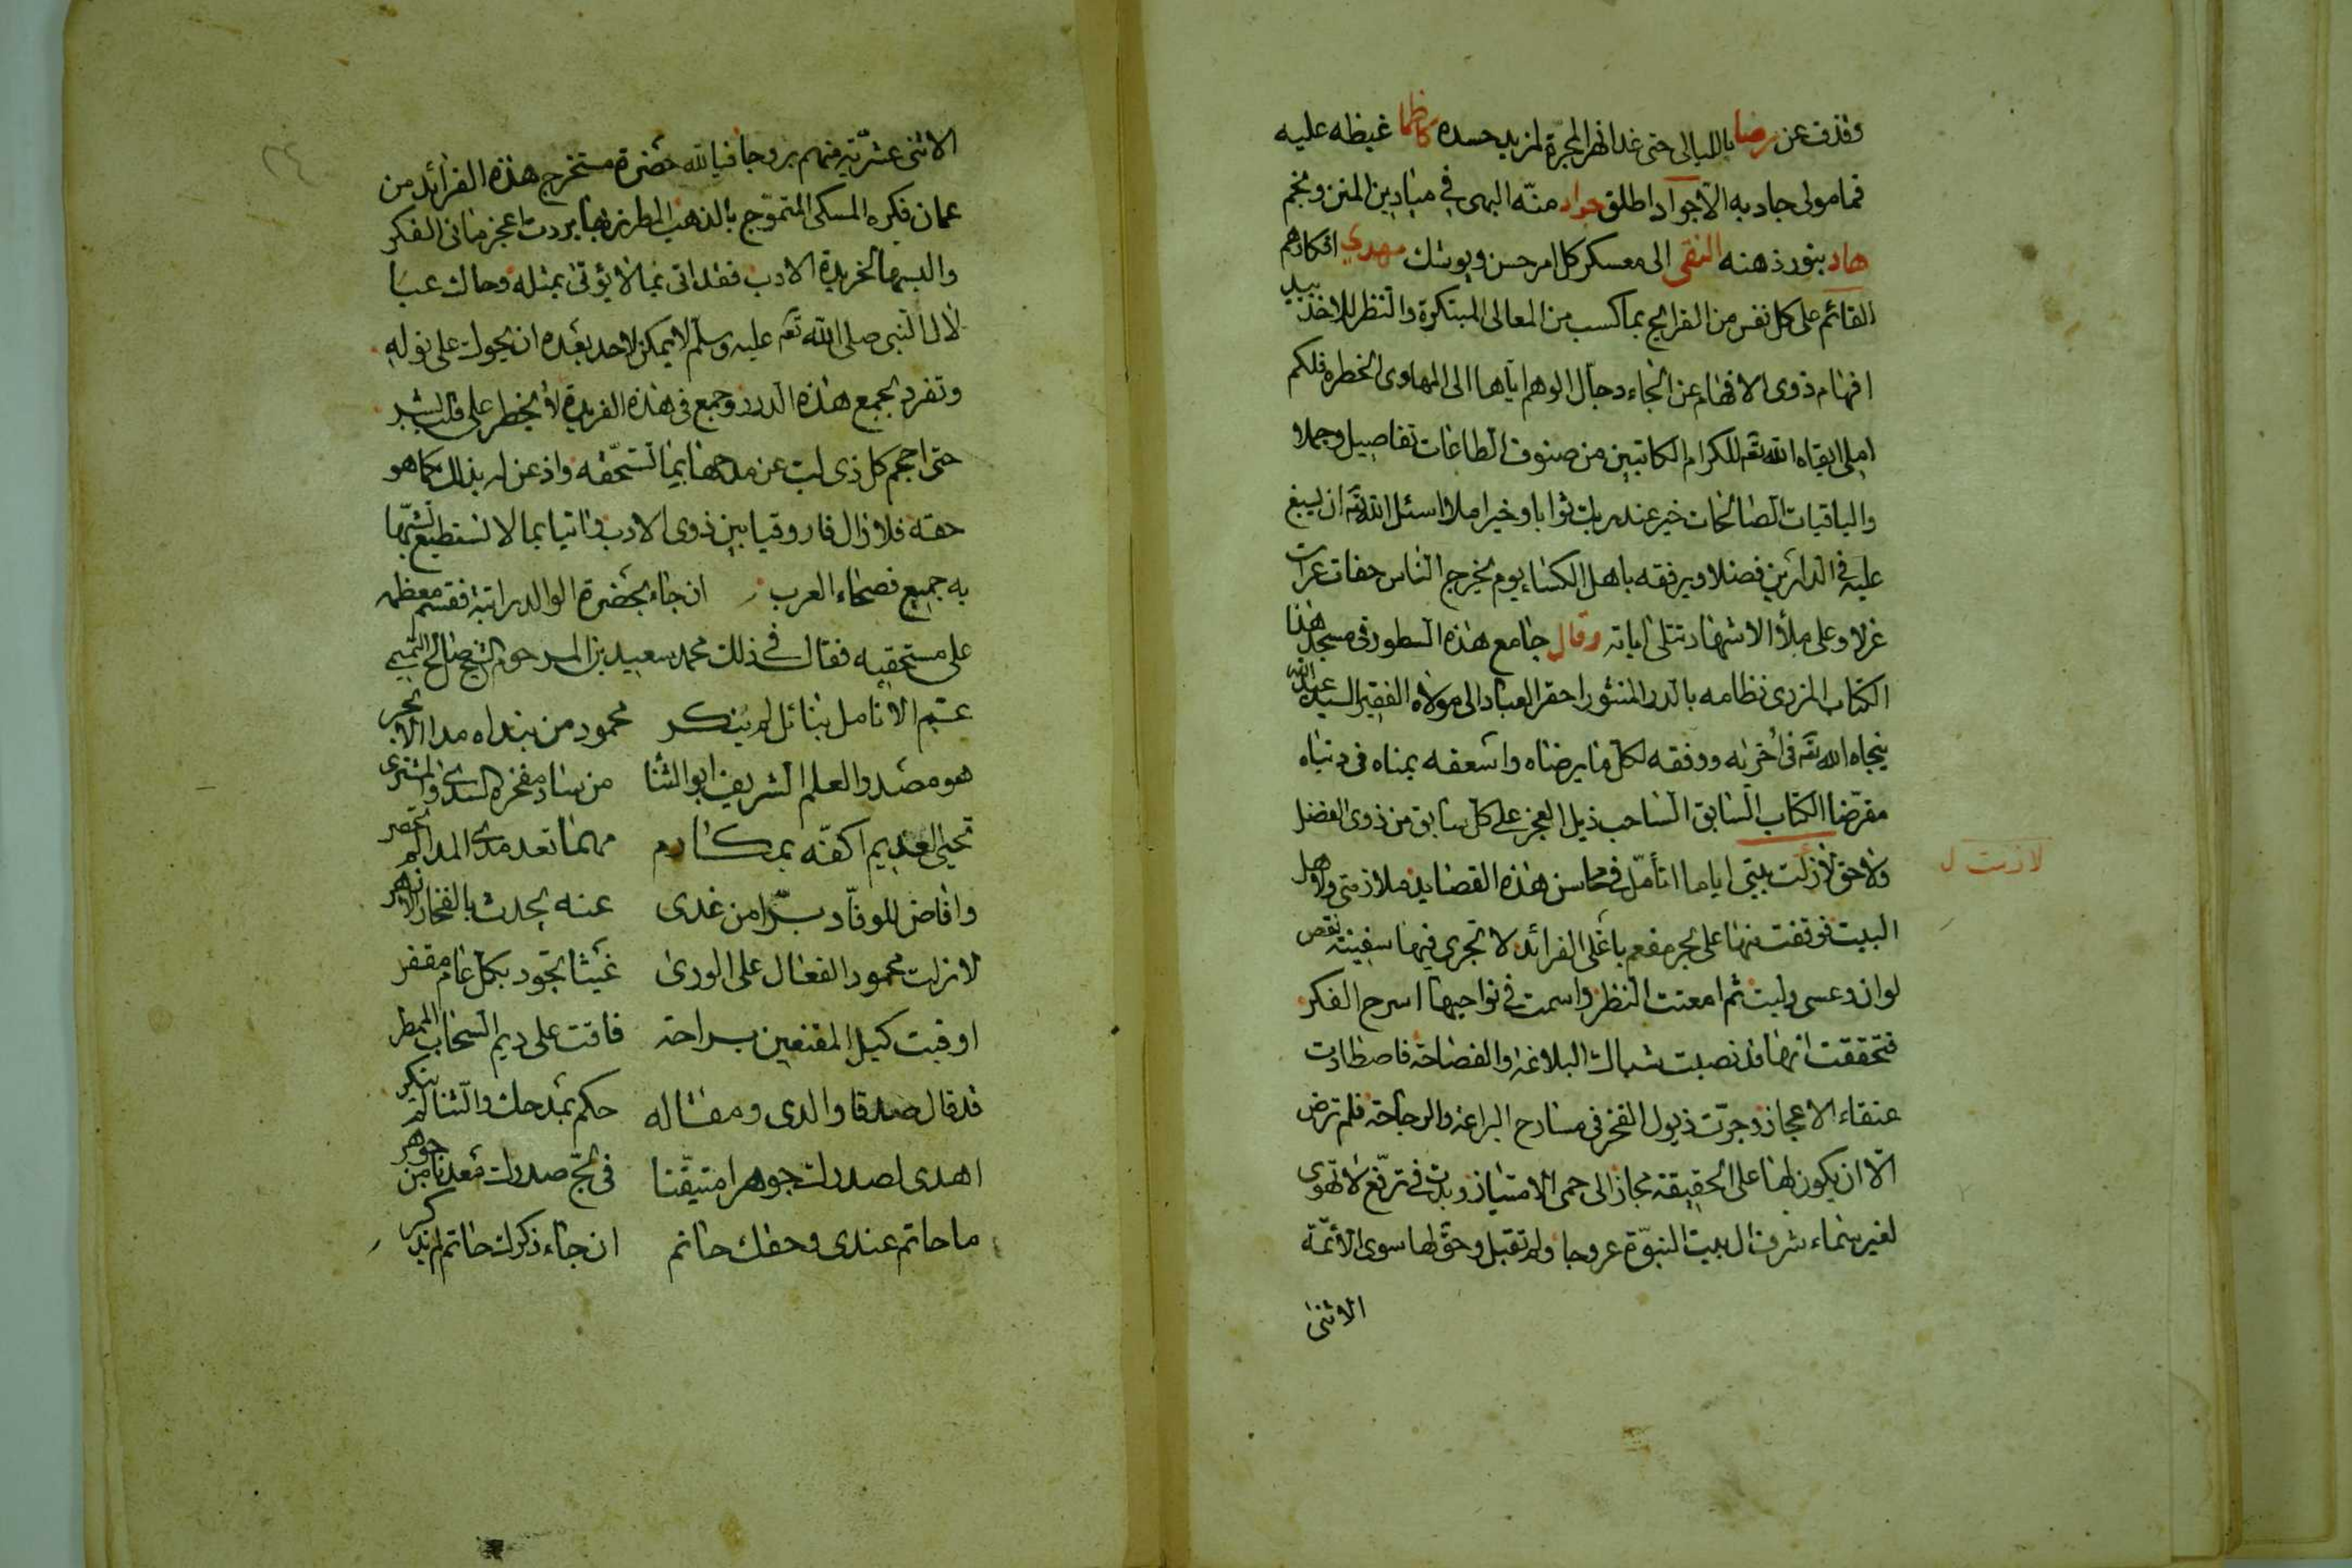 وقذف عن رضا باللیالی حتی غدا نهر المجرّة لمزید حسده كاظما غیظه علیه
فما مولی جاد به الاجواد اطلق جواد منّه البهی فی میادین المنن ونجم
هاد بنور ذهنه النقی الی معسكر كل امر حسن ویوشك مهدی افكارهم
القائم علی كل نفس من القرایح بما كسب من المعالی المبتكرة والنظر للاخذ بید
افهام ذوی الافهام عن الجاء دجّال الوهم ایاها الی المهاوی الخطره فلكم
املی ابقاه الله تعه للكرام الكاتبین من صنوف الطاعات تفاصیل وجملا
والباقیات الصالحات خیر عند ربك ثوابا وخیر املا واسئل الله تعه ان یسبغ
علیه فی الدارین فضلا ویرفقه باهل الكساء یوم یخرج الناس حفات عرات
غرلا وعلی ملأ الاشهاد تتلی ایاته وقال جامع هذه السطور فی مسجد هذا
الكتاب المزری نظامه بالدر المنثور احقر العباد الی مولاه الفقیر السید عبد الله
نجاه الله تعه فی اخریه ووفقه لكل ما یرضاه واسعفه بمناه فی دنیاه
مقرّضا الكتاب السابق الساحب ذیل العجز علی كل سابق من ذوی الفضل
ولاحق لازلت بیتی ایاما اتأمّل فی محاسن هذه القصاید ملازمتی ولاهل
لازمت ل
البیت فوقفت منها علی بحر مفعم باغلی الفرائد لا تجری فیها سفینة نقص
لوان وعسی ولیت ثم امعنت النظر واسمت فی نواحیها اسرح الفكر
فتحققت انها قد نصبت شباك البلاغة والفصاحة فاصطادت
عنقاء الاعجاز وجرّت ذیول الفخر فی مسارح البراعة والرجاحة فلم ترض
الّا ان یكون لها علی الحقیقة مجاز الی حمی الامتیاز وبدت فی ترفّع لا تهوی
لغیر سماء شرف ال بیت النبوّة عروجا ولم تقبل وحقّ لها سوی الائمّة
الاثنی
الاثنی عشریّة منهم بروجا فیا لله حضرة مستخرج هذه الفرائد من
عمان فكره المسكی المتموّج بالذهب المطرز بها برودت اعجز مانی الفكر
والبسها لخریدة الادب فقد اتی بما لا یؤتی بمثله وحاك عبا
لال النبی صلی الله تعه علیه وسلم لا یمكن لاحد بعده ان یحوك علی نوله
وتفرد بجمع هذه الدرر وجمع فی هذه الفریدة لا یخطر علی قلب بشر
حتی احجم كل ذی لب عن مدحها بما تستحقّه واذعن له بذلك كما هو
حقه فلا زال فاروقیا بین ذوی الادب واتیا بما لا تستطیع تشبّها
به جمیع فصحاء العرب ان جاء لحضرة الوالد راتبة فقسم معظمه
علی مستحقیه فقال فی ذلك محمد سعید بن المرحوم الشیخ صالح التمیمی
عتم الانامل بنائل لم ینكر محمود من بنداه مد الابحر
هو مصدر العلم الشریف ابو الثنا من ساد مفخره السدی والمشتری
تحیی العدیم اكفّه بمكارم مهما تعد مدی المدا لم تحصر
وافاض للوفّاد برّا من غدی عنه یحدث بالفخار الازهر
لازلت محمود الفعال علی الوری غیثا تجود بكل عام مقفر
اوفیت كیل المقنعین براحة فاقت علی دیم السحاب الممطر
قد قال صدقا والدی ومقاله حكم بمدحك والثنا لم ینكر
اهدی لصدرك جوهرا متیقّنا فی لجّ صدرك معدنا من جوهر
ما حاتم عندی وحقك حاتم ان جاء ذكرك حاتم لم یذكر